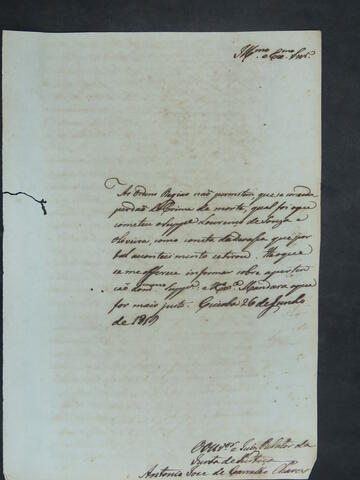 Illmo. e Exmo. Snr.
As Ordens Regias não permitem, que se conceda
perdão de Crime de morte, qual foi o que
cometeu o Suppe. Lourenço de Souza e
Oliveira, como consta da devassa que por
tal acontecimento se tirou. He o que
se me offerece informar sobre a perten-
cão do mesmo Suppe. e V. Exca. Mandará o que
for mais justo. Cuiabá 26 de Junho
de 1819
O Ouvor. e Juiz Relator da
Junta de Justiça
Antonio Jose de Carvalho Chaves